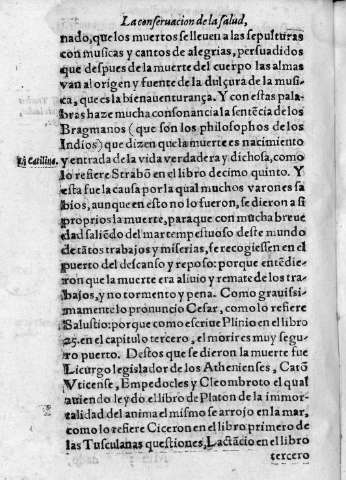 La conseruacion de la salud,
nado, que los muertos se lleuen a las sepulturas
con musicas y cantos de alegrias, persuadidos
que despues de la muerte del cuerpo las almas
van al origen y fuente de la dulçura de la musi-
ca, que es la bienauenturança. Y con estas pala-
bras haze mucha consonancia la sentẽcia de los
Bragmanos (que són los philosophos de los
Indios) que dizen que la muerte es nacimiento
En Catilina.
y entrada de la vida verdadera y dichosa, como
lo refiere Strabõ en el libro decimo quinto. Y
esta fue la causa por la qual muchos varones sa
bios, aunque en esto no lo fueron, se dieron a si
proprios la muerte, para que con mucha breue
dad saliẽdo del mar tempestuoso deste mundo
de tãtos trabajos y miserias, se recogiessen en el
puerto del descanso y reposo: porque entẽdie-
ron que la muerte era aliuio y remate de los tra-
bajos, y no tormento y pena. Como grauissi-
mamente lo pronuncio Cesar, como lo refiere
Salustio: porque como escriue Plinio en el libro
25. en el capitulo tercero, el morir es muy segu-
ro puerto. Destos que se dieron la muerte fue
Licurgo legislador de los Athenienses, Catõ
Vticense, Empedocles y Cleombroto el qual
auiendo leydo el libro de Platon de la immor-
talidad del anima el mismo se arrojo en la mar,
como lo refiere Ciceron en el libro primero de
las Tusculanas questiones, Lactãcio en el libro
tercero